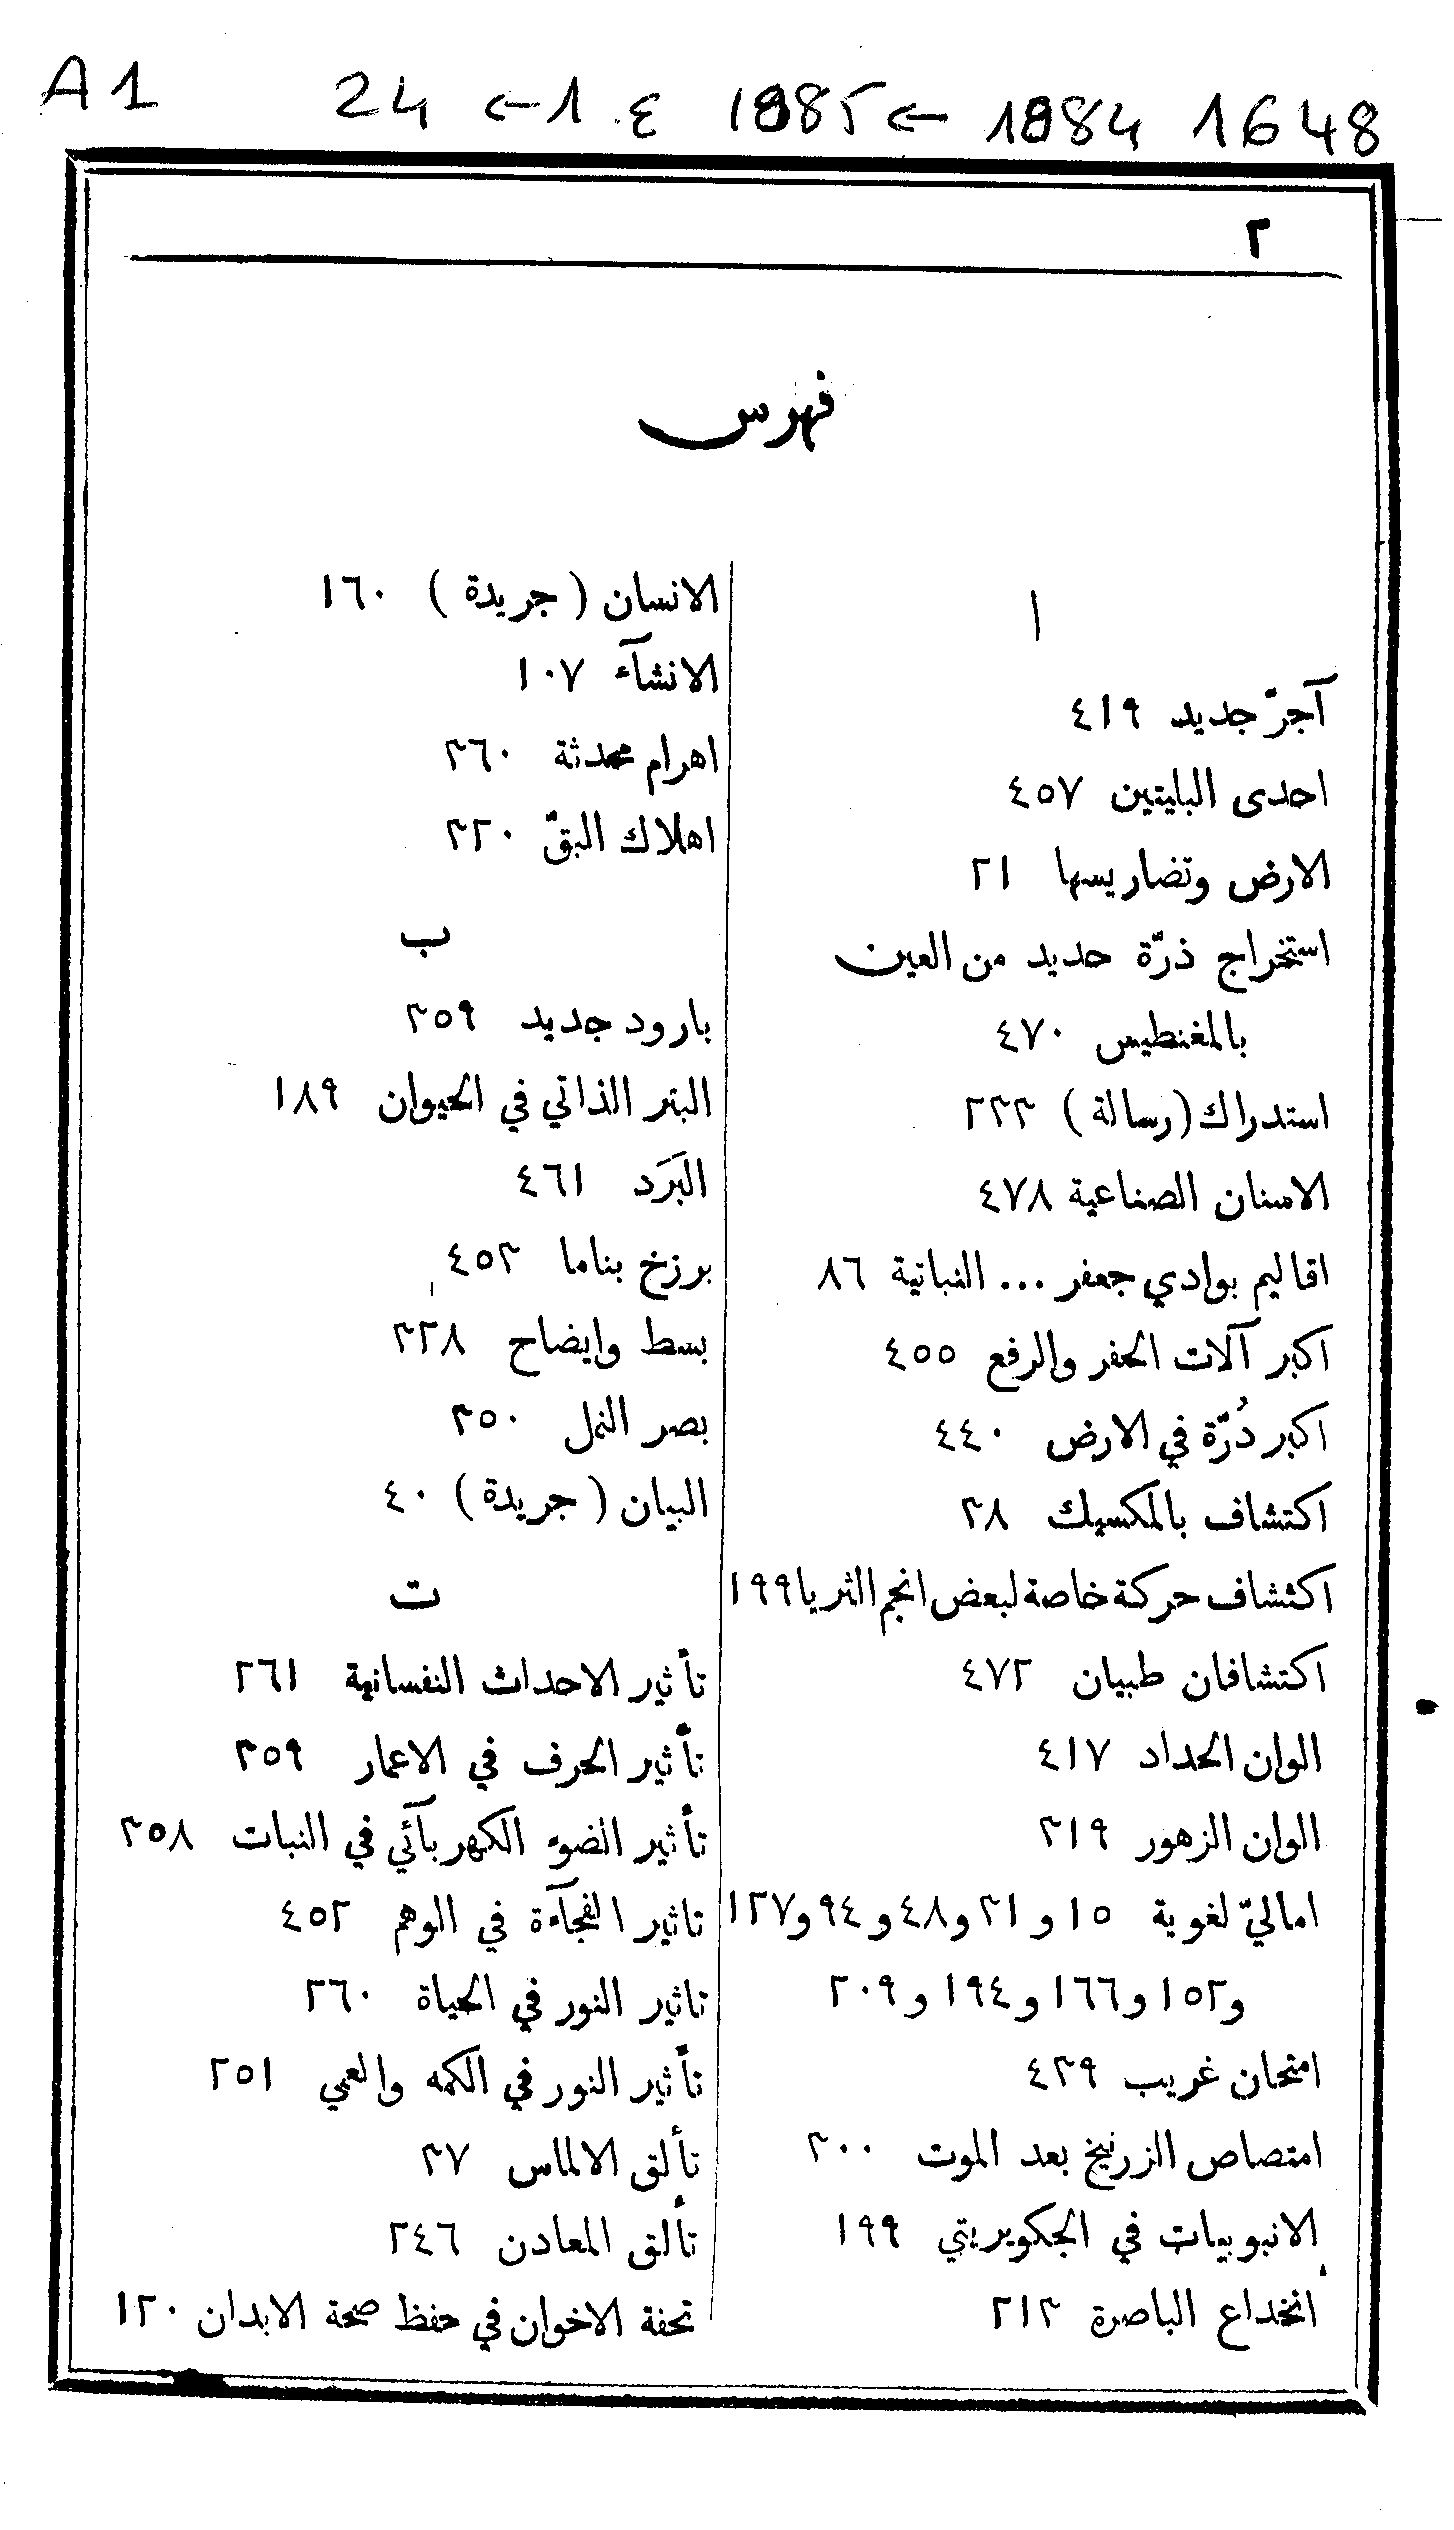 A1 24 ← 1 ع 1985 ← 1984 1648
٢
فهرس
ا
آجرّ جديد ٤١٩
احدى البليتين ٤٥٧
الارض وتضاريسها ٢١
استخراج ذرّة حديد من العين
بالمغنطيس ٤٧٠
استدراك (رسالة) ٢٣٣
الاسنان الصناعية ٤٧٨
اقاليم بوادي جعفر ... النباتية ٨٦
اكبر آلات الحفر والرفع ٤٥٥
اكبر دُرّة في الارض ٤٤٠
اكتشاف بالمكسيك ٣٨
اكتشاف حركة خاصة لبعض انجم الثريا ١٩٩
اكتشافان طبيان ٤٧٢
الوان الحداد ٤١٧
الوان الزهور ٣١٩
اماليّ لغوية ١٥ و ٣١ و ٤٨ و ٩٤ و ١٢٧
و ١٥٢ و ١٦٦ و ١٩٤ و ٢٠٩
امتحان غريب ٤٣٩
امتصاص الزرنيخ بعد الموت ٣٠٠
الانبوبيات في الجكويريتي ١٩٩
انخداع الباصرة ٢١٣
الانسان ( جريدة ) ١٦٠
الانشآء ١٠٧
اهرام محدثة ٣٦٠
اهلاك البقّ ٣٢٠
ب
بارود جديد ٣٥٩
البتر الذاتي في الحيوان ١٨٩
البَرَد ٤٦١
برزخ بناما ٤٥٣
بسط وايضاح ٣٢٨
بصر النمل ٣٥٠
البيان ( جريدة ) ٤٠
ت
تأثير الاحداث النفسانية ٢٦١
تأثير الحرف في الاعمار ٣٥٩
تأثير الضوء الكهربآئي في النبات ٣٥٨
تاثير الفجآءة في الوهم ٤٥٢
تاثير النور في الحياة ٢٦٠
تأثير النور في الكمه والعمي ٢٥١
تألق الالماس ٣٧
تألق المعادن ٢٤٦
تحفة الاخوان في حفظ صحة الابدان ١٢٠